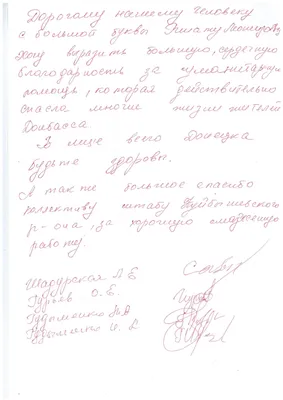 Дорогому нашему Человеку
с большой буквы Ринату Леонидовичу
Хочу выразить большую, сердечную
благодарность за гуманитарную
помощь, которая действительно
спасла многие жизни жителей
Донбасса.
В лице всего Донецка
будьте здоровы.
А также большое спасибо
коллективу штабу Куйбышевского
р-она, за хорошую слаженную
работу.
Шадурская Л. Е
Гурьев О. Б.
Гудыменко
Гудыменко